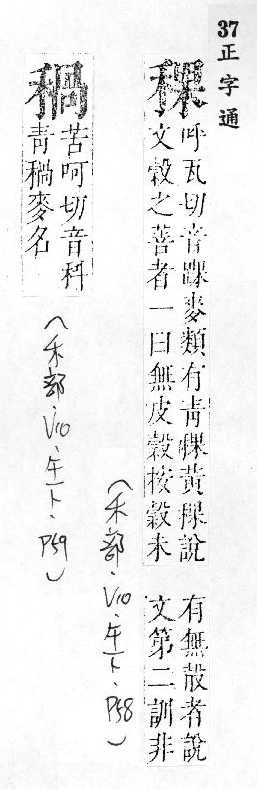 37
正字通
稞
呼瓦切音踝麥類有青稞黃稞說
文穀之善者一曰無皮穀按穀未
有無殼者說
文第二訓非
(禾部、V10、午下、P58)
苦呵切音科
青 麥名
(禾部、V10、午下、P59)